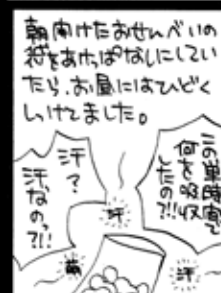 朝開けたおせんべいの
袋をあけっぱなしにしてい
たら、お昼にはひどく
しっけてました。
この短時間で
何を吸収
したの?!!
汗?
汗なのっ?!!
汗
汗